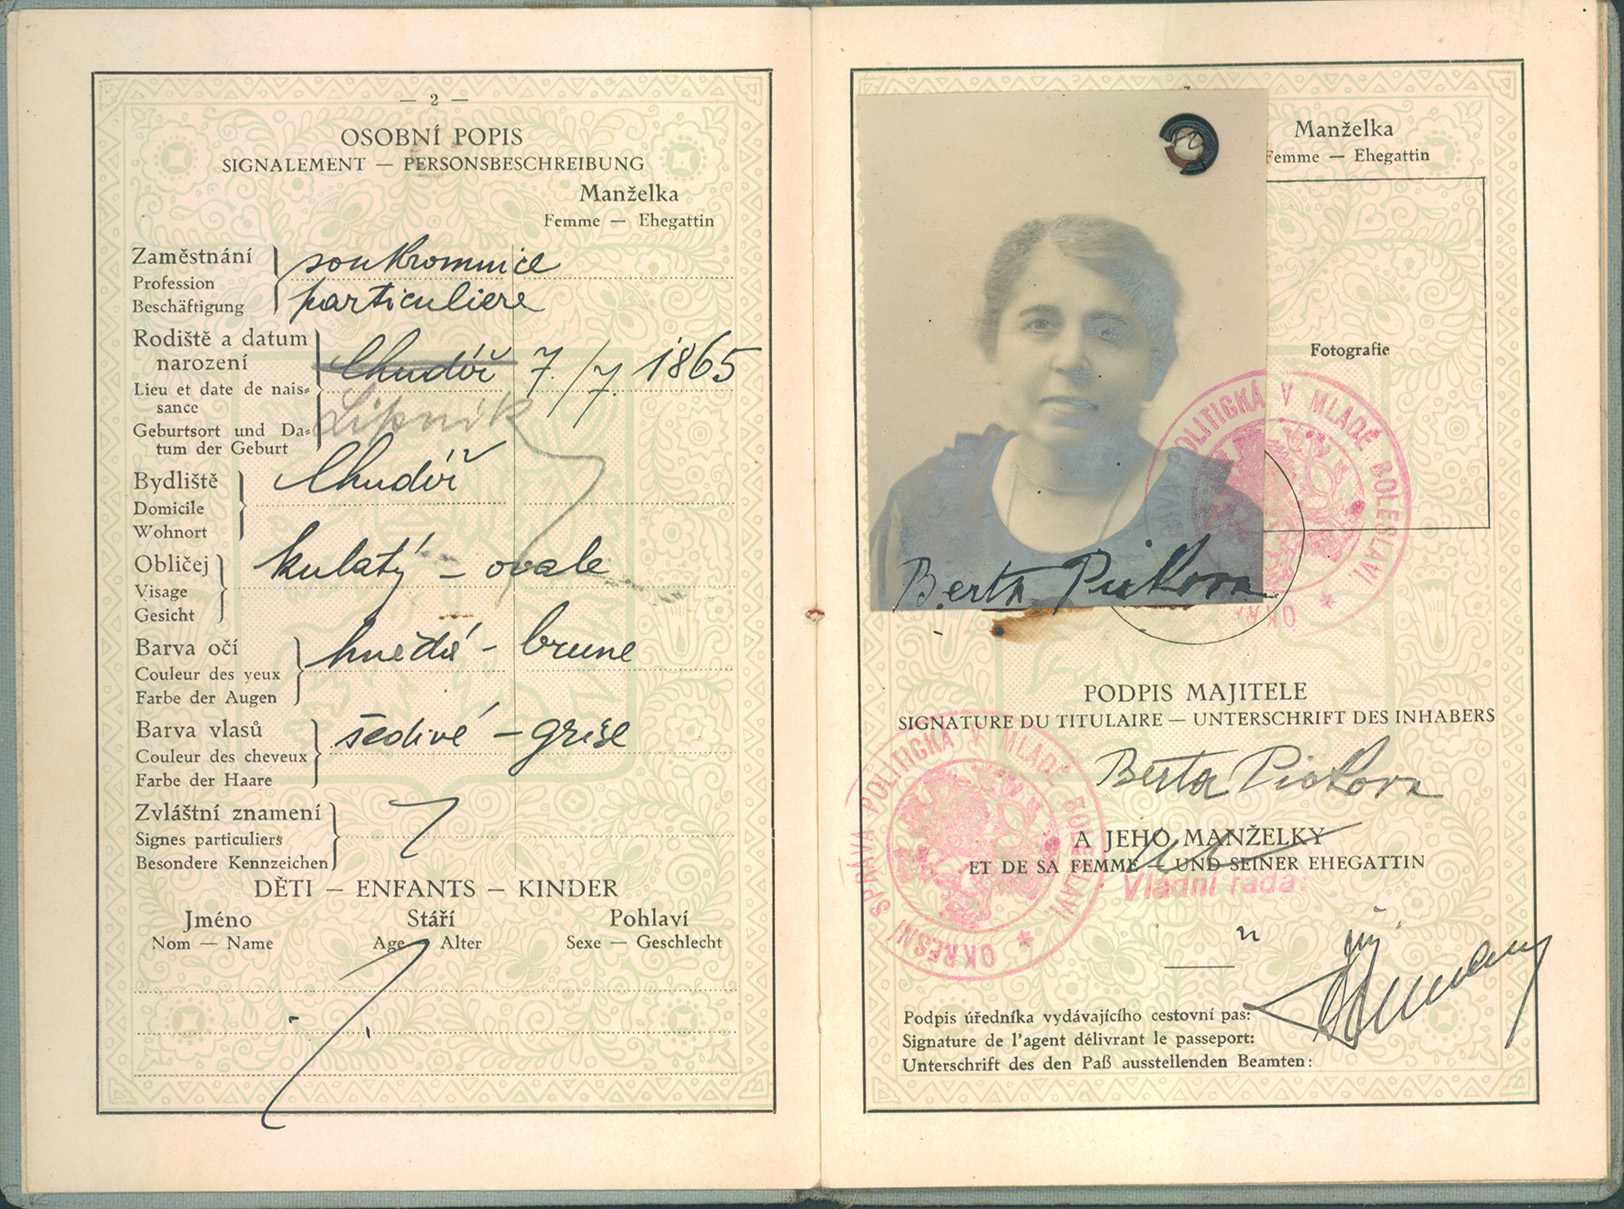 — 2 —
OSOBNÍ POPIS
SIGNALEMENT — PERSONSBESCHREIBUNG
Manželka
Femme — Ehegattin
Zaměstnání
Profession
Beschäftigung
soukromnice
particuliere
Rodiště a datum
narození
Lieu et date de nais=
sance
Geburtsort und Da=
tum der Geburt
Chudíř 7./7. 1865
Lipník
Bydliště
Domicile
Wohnort
Chudíř
Obličej
Visage
Gesicht
kulatý – ovale
Barva očí
Couleur des yeux
Farbe der Augen
hnědé – brune
Barva vlasů
Couleur des cheveux
Farbe der Haare
šedivé – grise
Zvláštní znamení
Signes particuliers
Besondere Kennzeichen
DĚTI — ENFANTS — KINDER
Jméno Stáří Pohlaví
Nom — Name Age Alter Sexe — Geschlecht
Manželka
Femme — Ehegattin
Fotografie
OKRESNÍ SPRÁVA POLITICKÁ V MLADÉ BOLESLAVI
Berta Pickova
PODPIS MAJITELE
SIGNATURE DU TITULAIRE — UNTERSCHRIFT DES INHABERS
Berta Pickova
A JEHO MANŽELKY
ET DE SA FEMME — UND SEINER EHEGATTIN
Vládní rada:
OKRESNÍ SPRÁVA POLITICKÁ V MLADÉ BOLESLAVI
Podpis úředníka vydávajícího cestovní pas:
Signature de l'agent délivrant le passeport:
Unterschrift des den Paß ausstellenden Beamten: